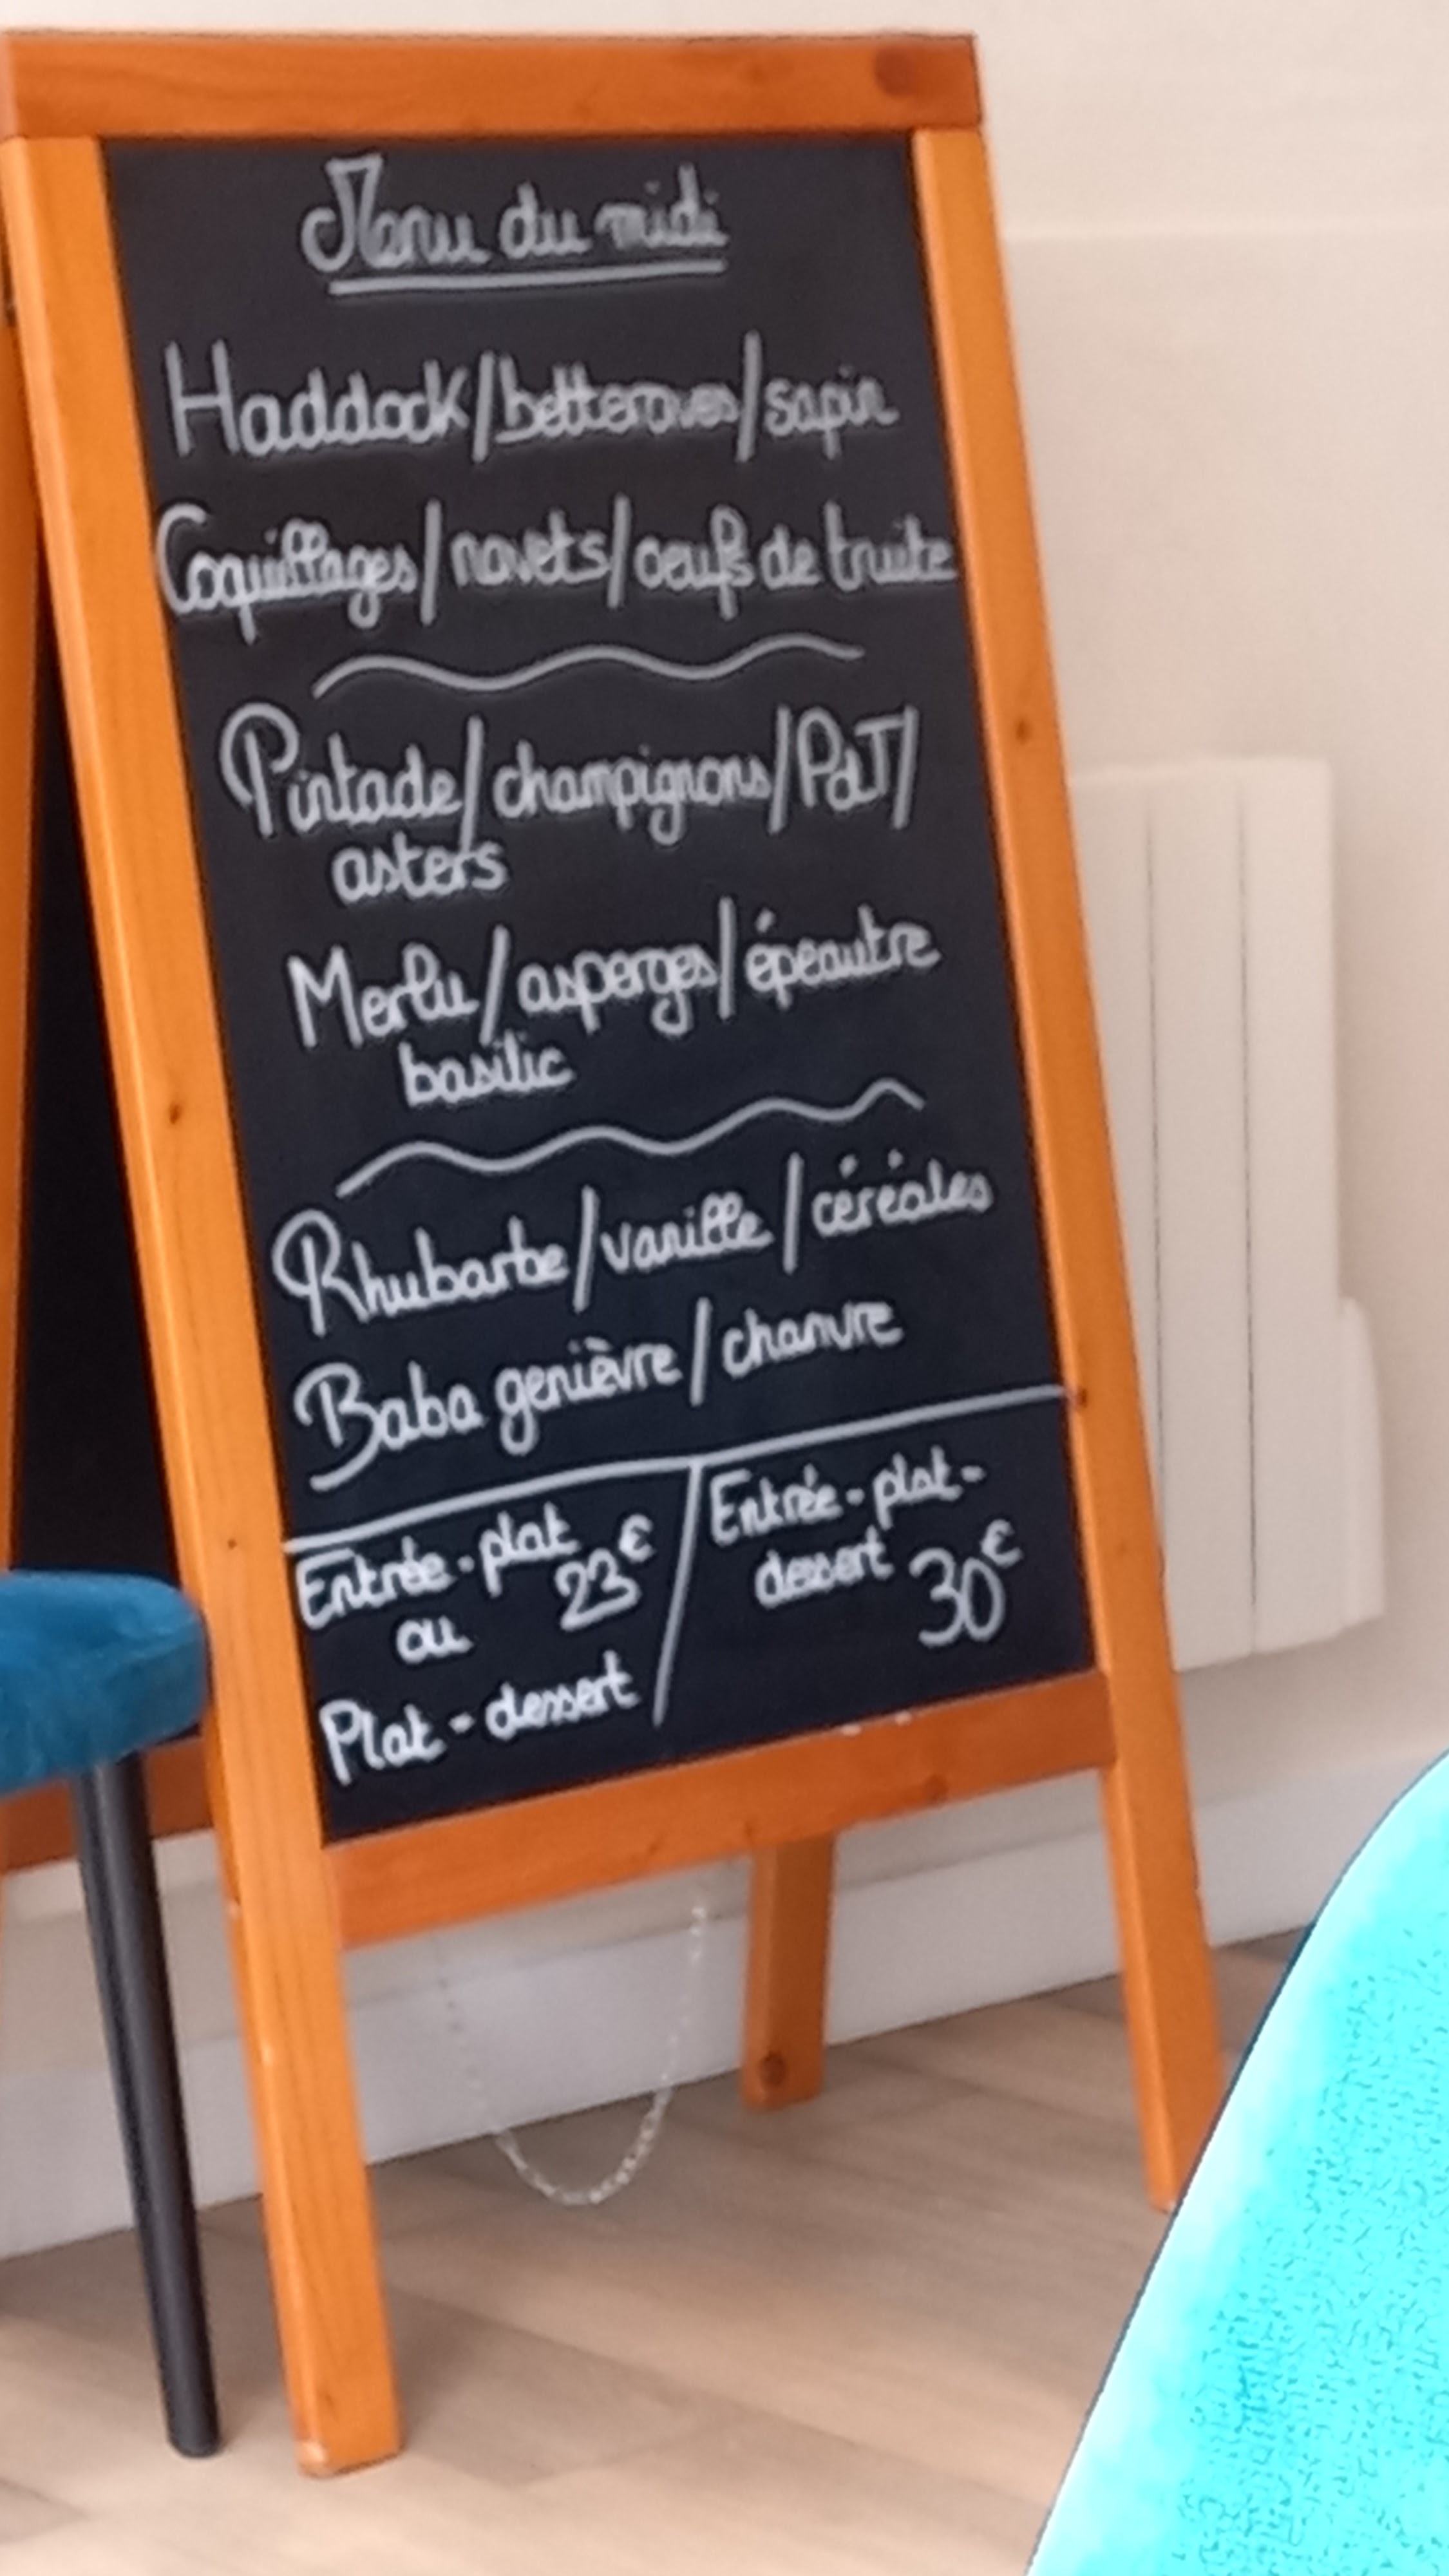 Menu du midi
Haddock/betteraves/sapin
Coquillages/navets/oeufs de truite
Pintade/champignons/PdT/
asters
Merlu/asperges/épeautre
basilic
Rhubarbe/vanille/céréales
Baba genièvre/chanvre
Entrée-plat 23€
ou
Plat-dessert
Entrée-plat-
dessert 30€